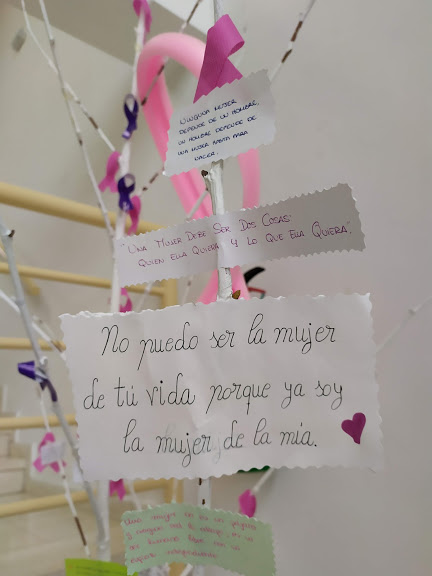 NINGUNA MUJER
DEPENDE DE UN HOMBRE,
UN HOMBRE DEPENDE DE
UNA MUJER HASTA PARA
NACER.
"UNA MUJER DEBE SER DOS COSAS:
QUIEN ELLA QUIERA Y LO QUE ELLA QUIERA".
No puedo ser la mujer
de tú vida porque ya soy
la mujer de la mía.
Una mujer no es un
y
un ser humano